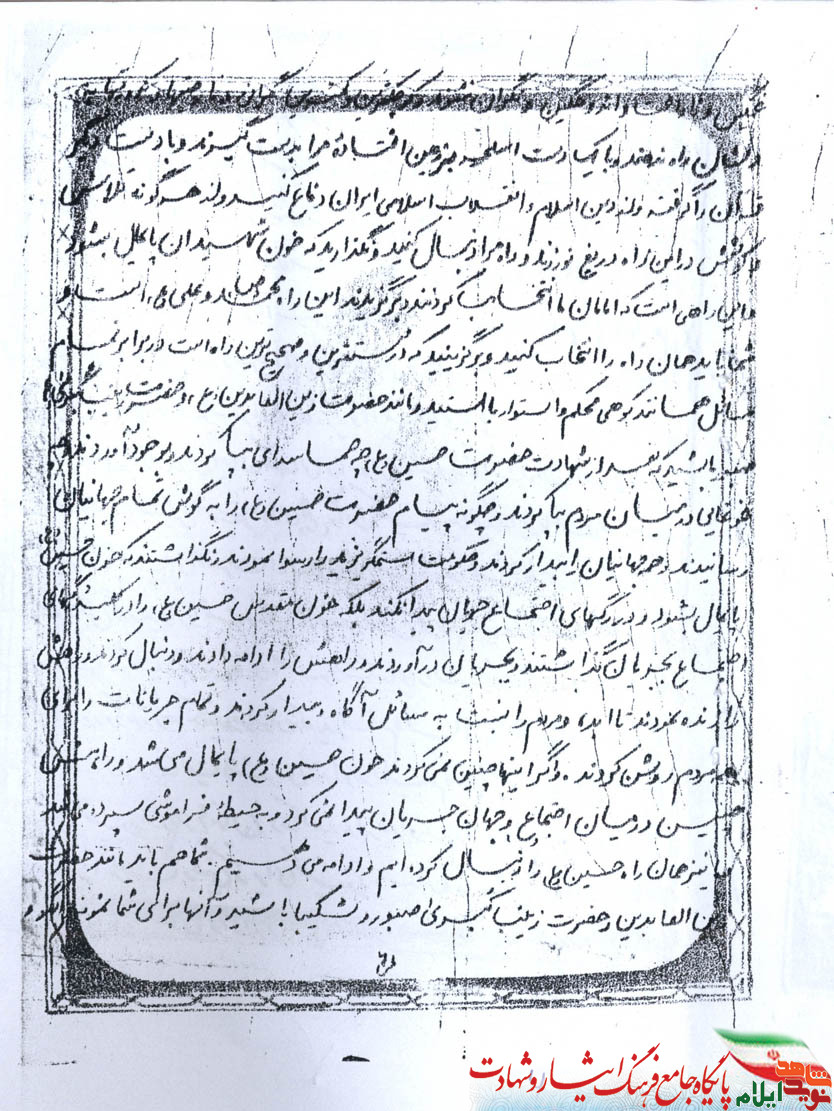 غمگین و ناراحت و اندوهگین و نگران نشوید و
دلشان راه ندهند و با یکدست اسلحه بر زمین افتادهٔ مرا بدست گیرند و با دست دیگر
قرآن را گرفته و از دین اسلام و انقلاب اسلامی ایران دفاع کنید و از هر گونه تلاش
و کوشش در این راه دریغ نورزند و راه مرا دنبال کنید و نگذارید که خون شهیدان پایمال بشود
و این راهی است که امامان ما انتخاب کردند و برگزیدند این راه محمد (ص) و علی (ع) است و
شما باید همان راه را انتخاب کنید و برگزینید که درستترین و صحیح ترین راه است در برابر تمام
مسائل همانند کوهی محکم و استوار بایستید و مانند حضرت زین العابدین (ع) و حضرت زینب کبری
صبور باشید که بعد از شهادت حضرت حسین (ع) چه حماسه‌ای بپا کردند و بوجود آوردند و چه
غوغایی در میان مردم بپا کردند و چگونه پیام حضرت حسین (ع) را به گوش تمام جهانیان
رسانیدند و همه جهانیان را بیدار کردند و حکومت ستمگر یزید را رسوا نمودند و نگذاشتند که خون حسین (ع)
پایمال بشود و در رگهای اجتماع جریان پیدا نکند بلکه خون مقدس حسین (ع) را در رگهای
اجتماع بجریان گذاشتند و بجریان در آوردند و راهش را ادامه دادند و دنبال کردند و راهش
را زنده نمودند تا ابد، و مردم را نسبت به مسائل آگاه و بیدار کردند و تمام جریانات را برای
همه مردم روشن کردند. و اگر اینها چنین نمی کردند خون حسین (ع) پایمال می شد و راه
حسین در میان اجتماع و جهان جریان پیدا نمی کرد و به حیطهٔ فراموشی سپرده می شد
ما نیز همان راه حسین (ع) را دنبال کرده ایم و ادامه می دهیم. شما هم باید مانند حضرت
زین العابدین و حضرت زینب کبری صبور و شکیبا باشید و آنها برای شما نمونه و الگو
پایگاه جامع فرهنگ ایثار و شهادت
نوید شاهد ایلام